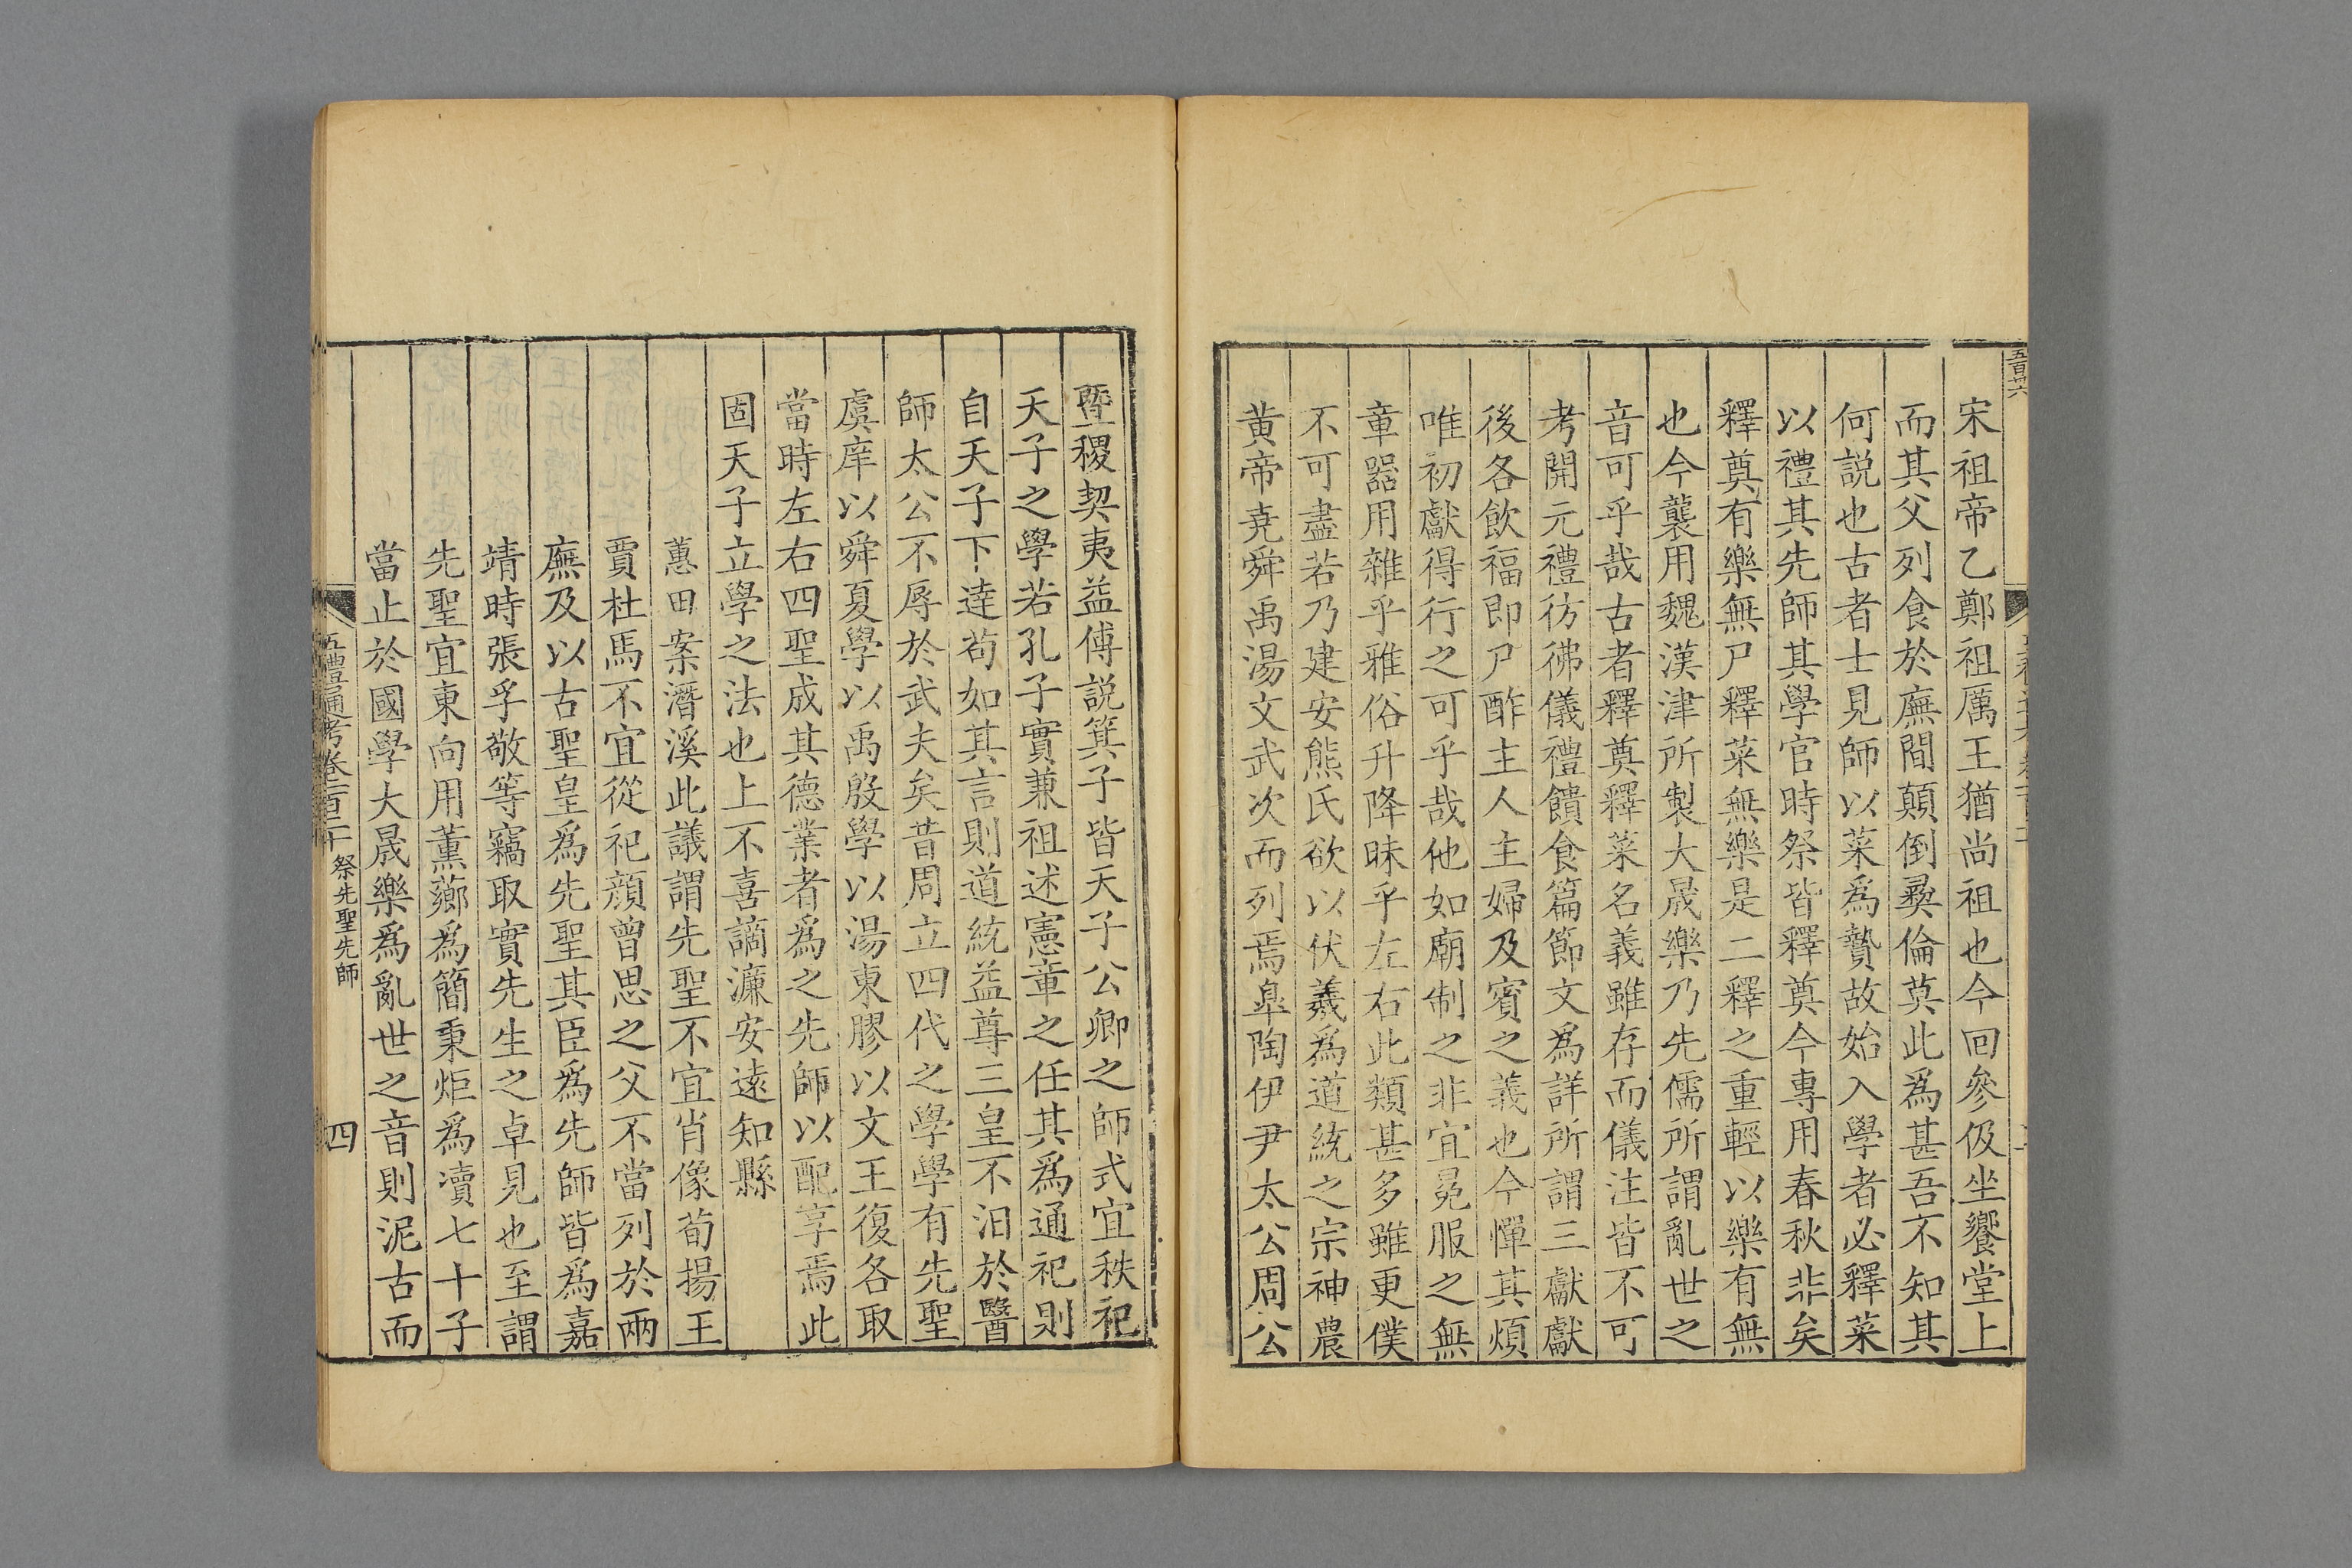 五百卅六
宋祖帝乙鄭祖厲王猶尚祖也今回參伋坐饗堂上
而其父列食於廡間顛倒彞倫莫此爲甚吾不知其
何説也古者士見師以菜爲贄故始入學者必釋菜
以禮其先師其學官時祭皆釋奠今專用春秋非矣
釋奠有樂無尸釋菜無樂是二釋之重輕以樂有無
也今襲用魏漢津所製大晟樂乃先儒所謂亂世之
音可乎哉古者釋奠釋菜名義雖存而儀注皆不可
考開元禮彷彿儀禮饋食篇節文爲詳所謂三獻獻
後各飲福即尸酢主人主婦及賓之義也今憚其煩
唯初獻得行之可乎哉他如廟制之非宜冕服之無
章器用雜乎雅俗升降昧乎左右此類甚多雖更僕
不可盡若乃建安熊氏欲以伏羲爲道統之宗神農
黄帝堯舜禹湯文武次而列焉臯陶伊尹太公周公
曁稷契夷益傅説箕子皆天子公卿之師式宜秩祀
天子之學若孔子實兼祖述憲章之任其爲通祀則
自天子下達茍如其言則道統益尊三皇不汨於醫
師太公不辱於武夫矣昔周立四代之學學有先聖
虞庠以舜夏學以禹殷學以湯東膠以文王復各取
當時左右四聖成其德業者爲之先師以配享焉此
固天子立學之法也上不喜謫濂安遠知縣
蕙田案潛溪此議謂先聖不宜肖像荀揚王
賈杜馬不宜從祀顔曾思之父不當列於兩
廡及以古聖皇爲先聖其臣爲先師皆爲嘉
靖時張孚敬等竊取實先生之卓見也至謂
先聖宜東向用薰薌爲簡秉炬爲瀆七十子
當止於國學大晟樂爲亂世之音則泥古而
五禮通考卷一百二十 祭先聖先師 四